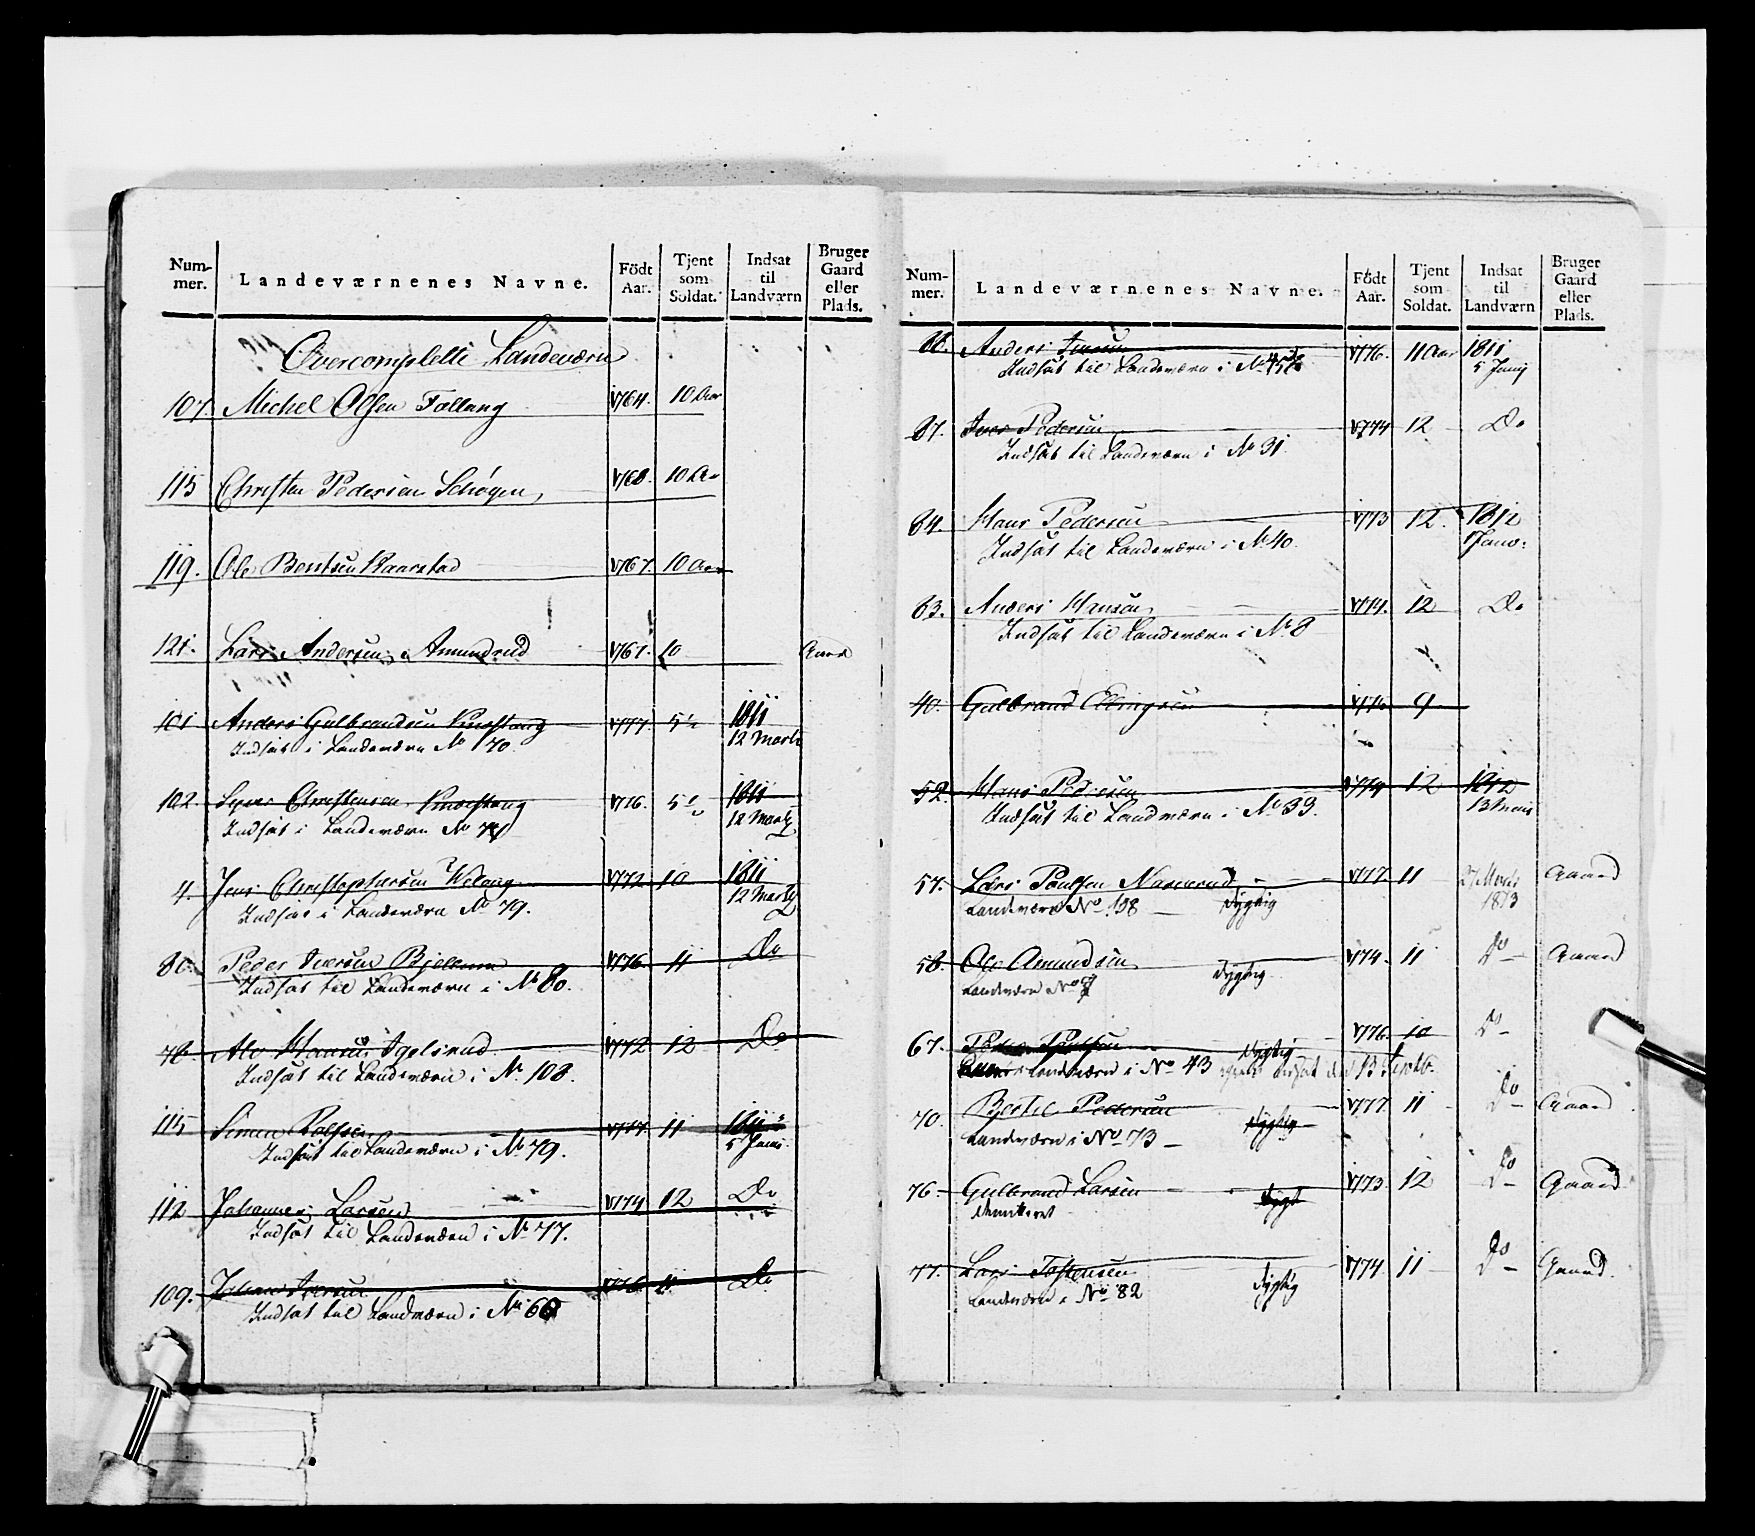 Num-
mer.
Landeværnenes Navne.
Födt
Aar.
Tjent
som
Soldat.
Indsat
til
Landværn
Bruger
Gaard
eller
Plads.
Overcomplette Landeværn
107. Michel Olsen Fællang 1764. 10 Aar
115 Christen Pedersen Schøyen 1768. 10 Aar
119. Ole Bentsen Kaarstad 1767. 10 Aar
121. Lars Andersen Amundrud 1767. 10 Gaard
101 Anders Gulbrandsen Knæstang 1777. 5½ 1811
Indsat i Landeværn No 70. 12 Marti
102. Syver Christensen Knæstang 1776. 5½ 1811
Indsat i Landeværn No 12 Marti
4. Jens Christophersen 1772 10 1811
Indsat i Landeværn No 79. 12 Marti
80. Peder Iversen 1776 11 Do
Indsat til Landeværn i No 80.
78. Alv Hansen Igelsrud 1772 12 Do
Indsat til Landeværn i No 108.
115 Simen Rolfsen 1777. 11 1811
Indsat til Landeværn i No 79. 5 Juni.
112 Johannes Larsen 1774 12 Do
Indsat til Landeværn i No 77.
109. Johan Iversen 1776 11 Do
Indsat til Landværn i No 66
Num-
mer.
Landeværnenes Navne.
Födt
Aar.
Tjent
som
Soldat.
Indsat
til
Landværn
Bruger
Gaard
eller
Plads.
88. Anders Iversen 1776. 11 Aar 1811
Indsat til Landeværn i No 5 Junij
81. Iver Pedersen 1774 12 Do
Indsat til Landeværn i No 31.
84. Hans Pedersen 1773 12. 1812
Indsat til Landeværn i No 40. Janv:
83. Anders Hansen 1774. 12 Do
Indsat til Landeværn i No 8
40. Gulbrand 1776 9
52. Hans Pedersen 1774 12 1812
Indsat til Landværn i No 33. 13 Mars
57. Lars Poulsen 1777 11 27 Marts Gaard
Landeværn No 138 dygtig 1813
58. Ole Amundsen 1774. 11 Do Gaard
Landeværn No 7 dygtig
67. Poulsen 1776. 10 Do
Landeværn i No 43 dygtig
70. Bertel Pedersen 1777 11 Do Gaard
Landeværn i No 73 dygtig
76 Gulbrand Larsen 1773. 12 Do Gaard
dygt
77. Lars Tostensen 1774 11 Do Gaard.
Landeværn i No 82 dygtig